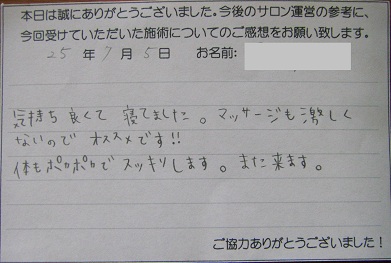 本日は誠にありがとうございました。今後のサロン運営の参考に、
今回受けていただいた施術についてのご感想をお願い致します。
25 年 7 月 5 日 お名前:
気持ち良くて 寝てました。マッサージも激しく
ないので オススメです!!
体もポカポカで スッキリします。また来ます。
ご協力ありがとうございました!